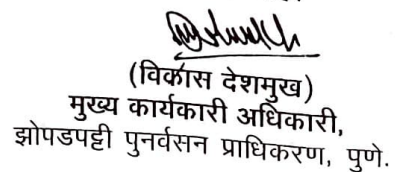 (विकास देशमुख)
मुख्य कार्यकारी अधिकारी,
झोपडपट्टी पुनर्वसन प्राधिकरण, पुणे.